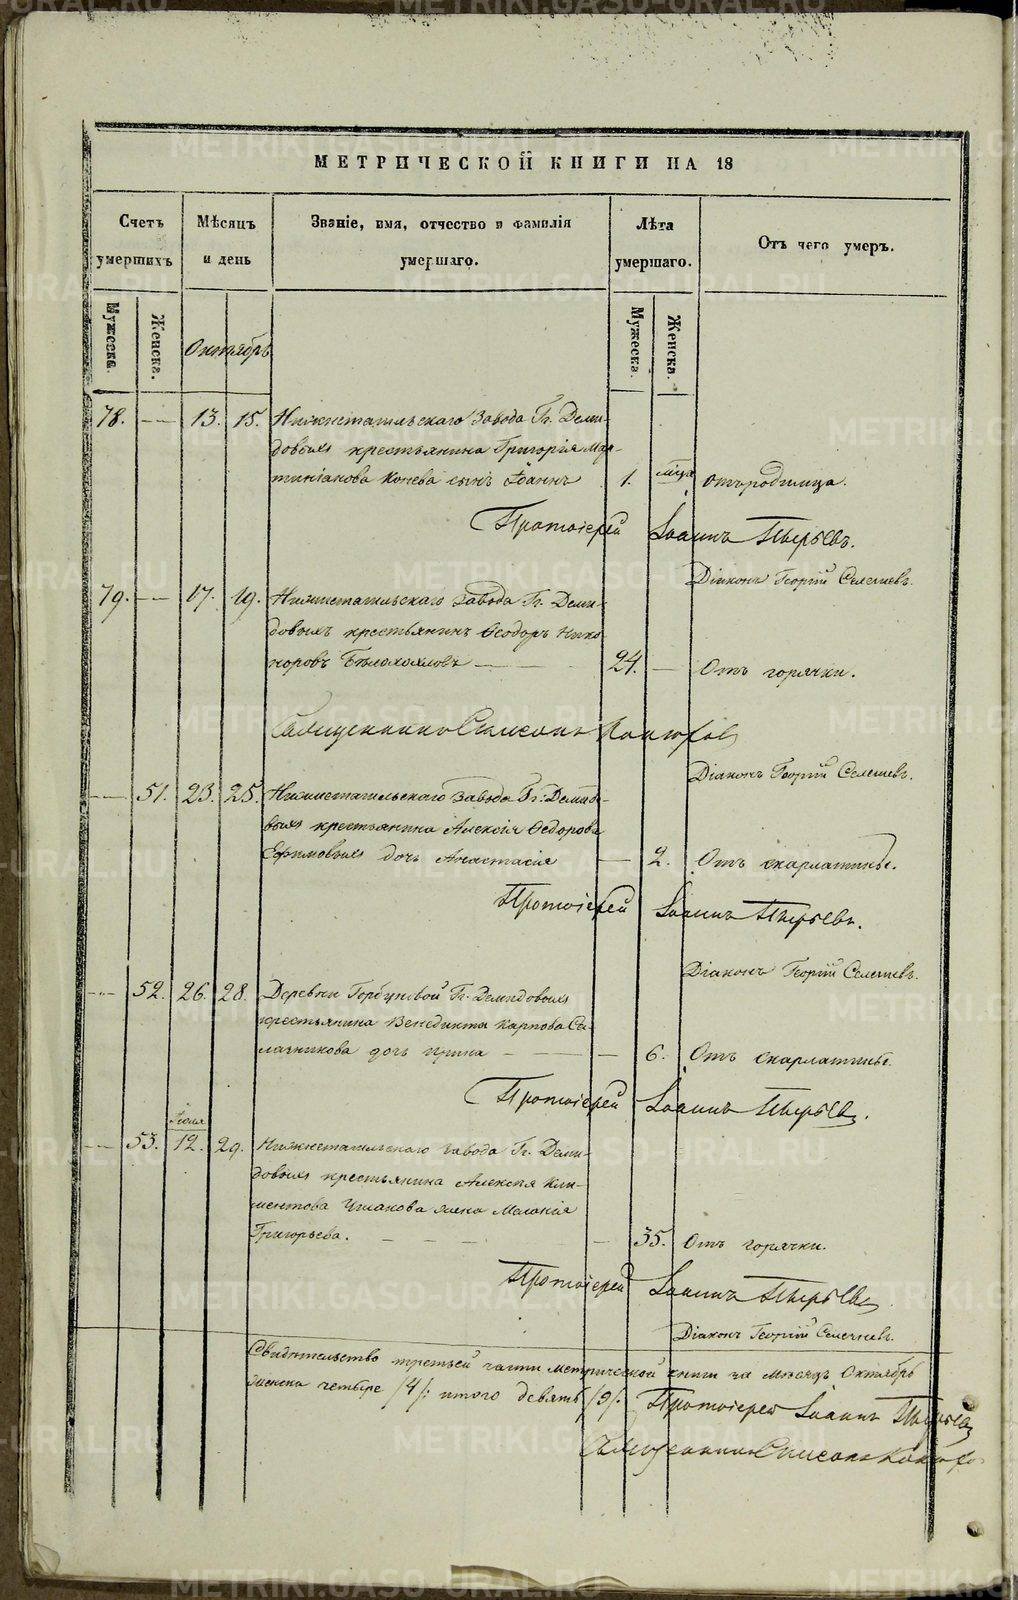 МЕТРИЧЕСКОЙ КНИГИ НА 18
Счетъ умершихъ
Мѣсяцъ и день
Званіе, имя, отчество и фамилія умершаго.
Лѣта умершаго.
Отъ чего умеръ.
Мужеска. Женска. Мужеска. Женска.
Октябрь
78. — 13. 15. Нижнетагильскаго завода Гг. Деми-
довыхъ крестьянина Григорія Мар-
тиніанова Конева сынъ Іоаннъ 1. мца отъ родимца.
Протоіерей Іоаннъ
Діаконъ Георгій
79. — 17. 19. Нижнетагильскаго завода Гг. Деми-
довыхъ крестьянинъ Ѳеодоръ Нико-
норовъ — 24. — Отъ горячки.
Священникъ Симеонъ
Діаконъ Георгій
— 51. 23. 25. Нижнетагильскаго завода Гг. Демидо-
выхъ крестьянина Алексія Ѳедорова
Ефимовыхъ дочь Анастасія — 2. Отъ скарлатины.
Протоіерей Іоаннъ
Діаконъ Георгій
— 52. 26. 28. Деревни Горбуновой Гг. Демидовыхъ
крестьянина Венедикта Карпова Са-
лачникова дочь Ирина — 6. Отъ скарлатины.
Протоіерей Іоаннъ
— 53. 12. 29. Нижнетагильскаго завода Гг. Деми-
довыхъ крестьянина Алексія Кли-
ментова жена Меланія
Григорьева. — 35. Отъ горячки.
Протоіерей Іоаннъ
Діаконъ Георгій
третьей части метрической книги за мѣсяцъ Октябрь
четыре /4/: итого девять /9/. Протоіерей Іоаннъ
Священникъ Симеонъ
METRIKI.GASO-URAL.RU